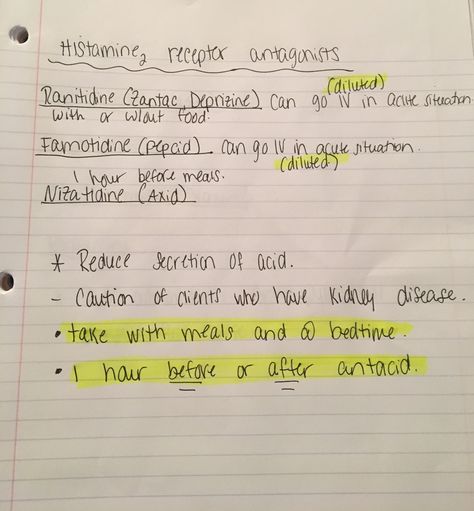 Histamine₂ receptor antagonists
(diluted)
Ranitidine (Zantac, Deprizine) can go IV in acute situation
with or w/out food.
Famotidine (Pepcid) can go IV in acute situation.
(diluted)
1 hour before meals.
Nizatidine (Axid)
* Reduce secretion of acid.
- Caution of clients who have kidney disease.
• take with meals and @ bedtime.
• 1 hour before or after antacid.